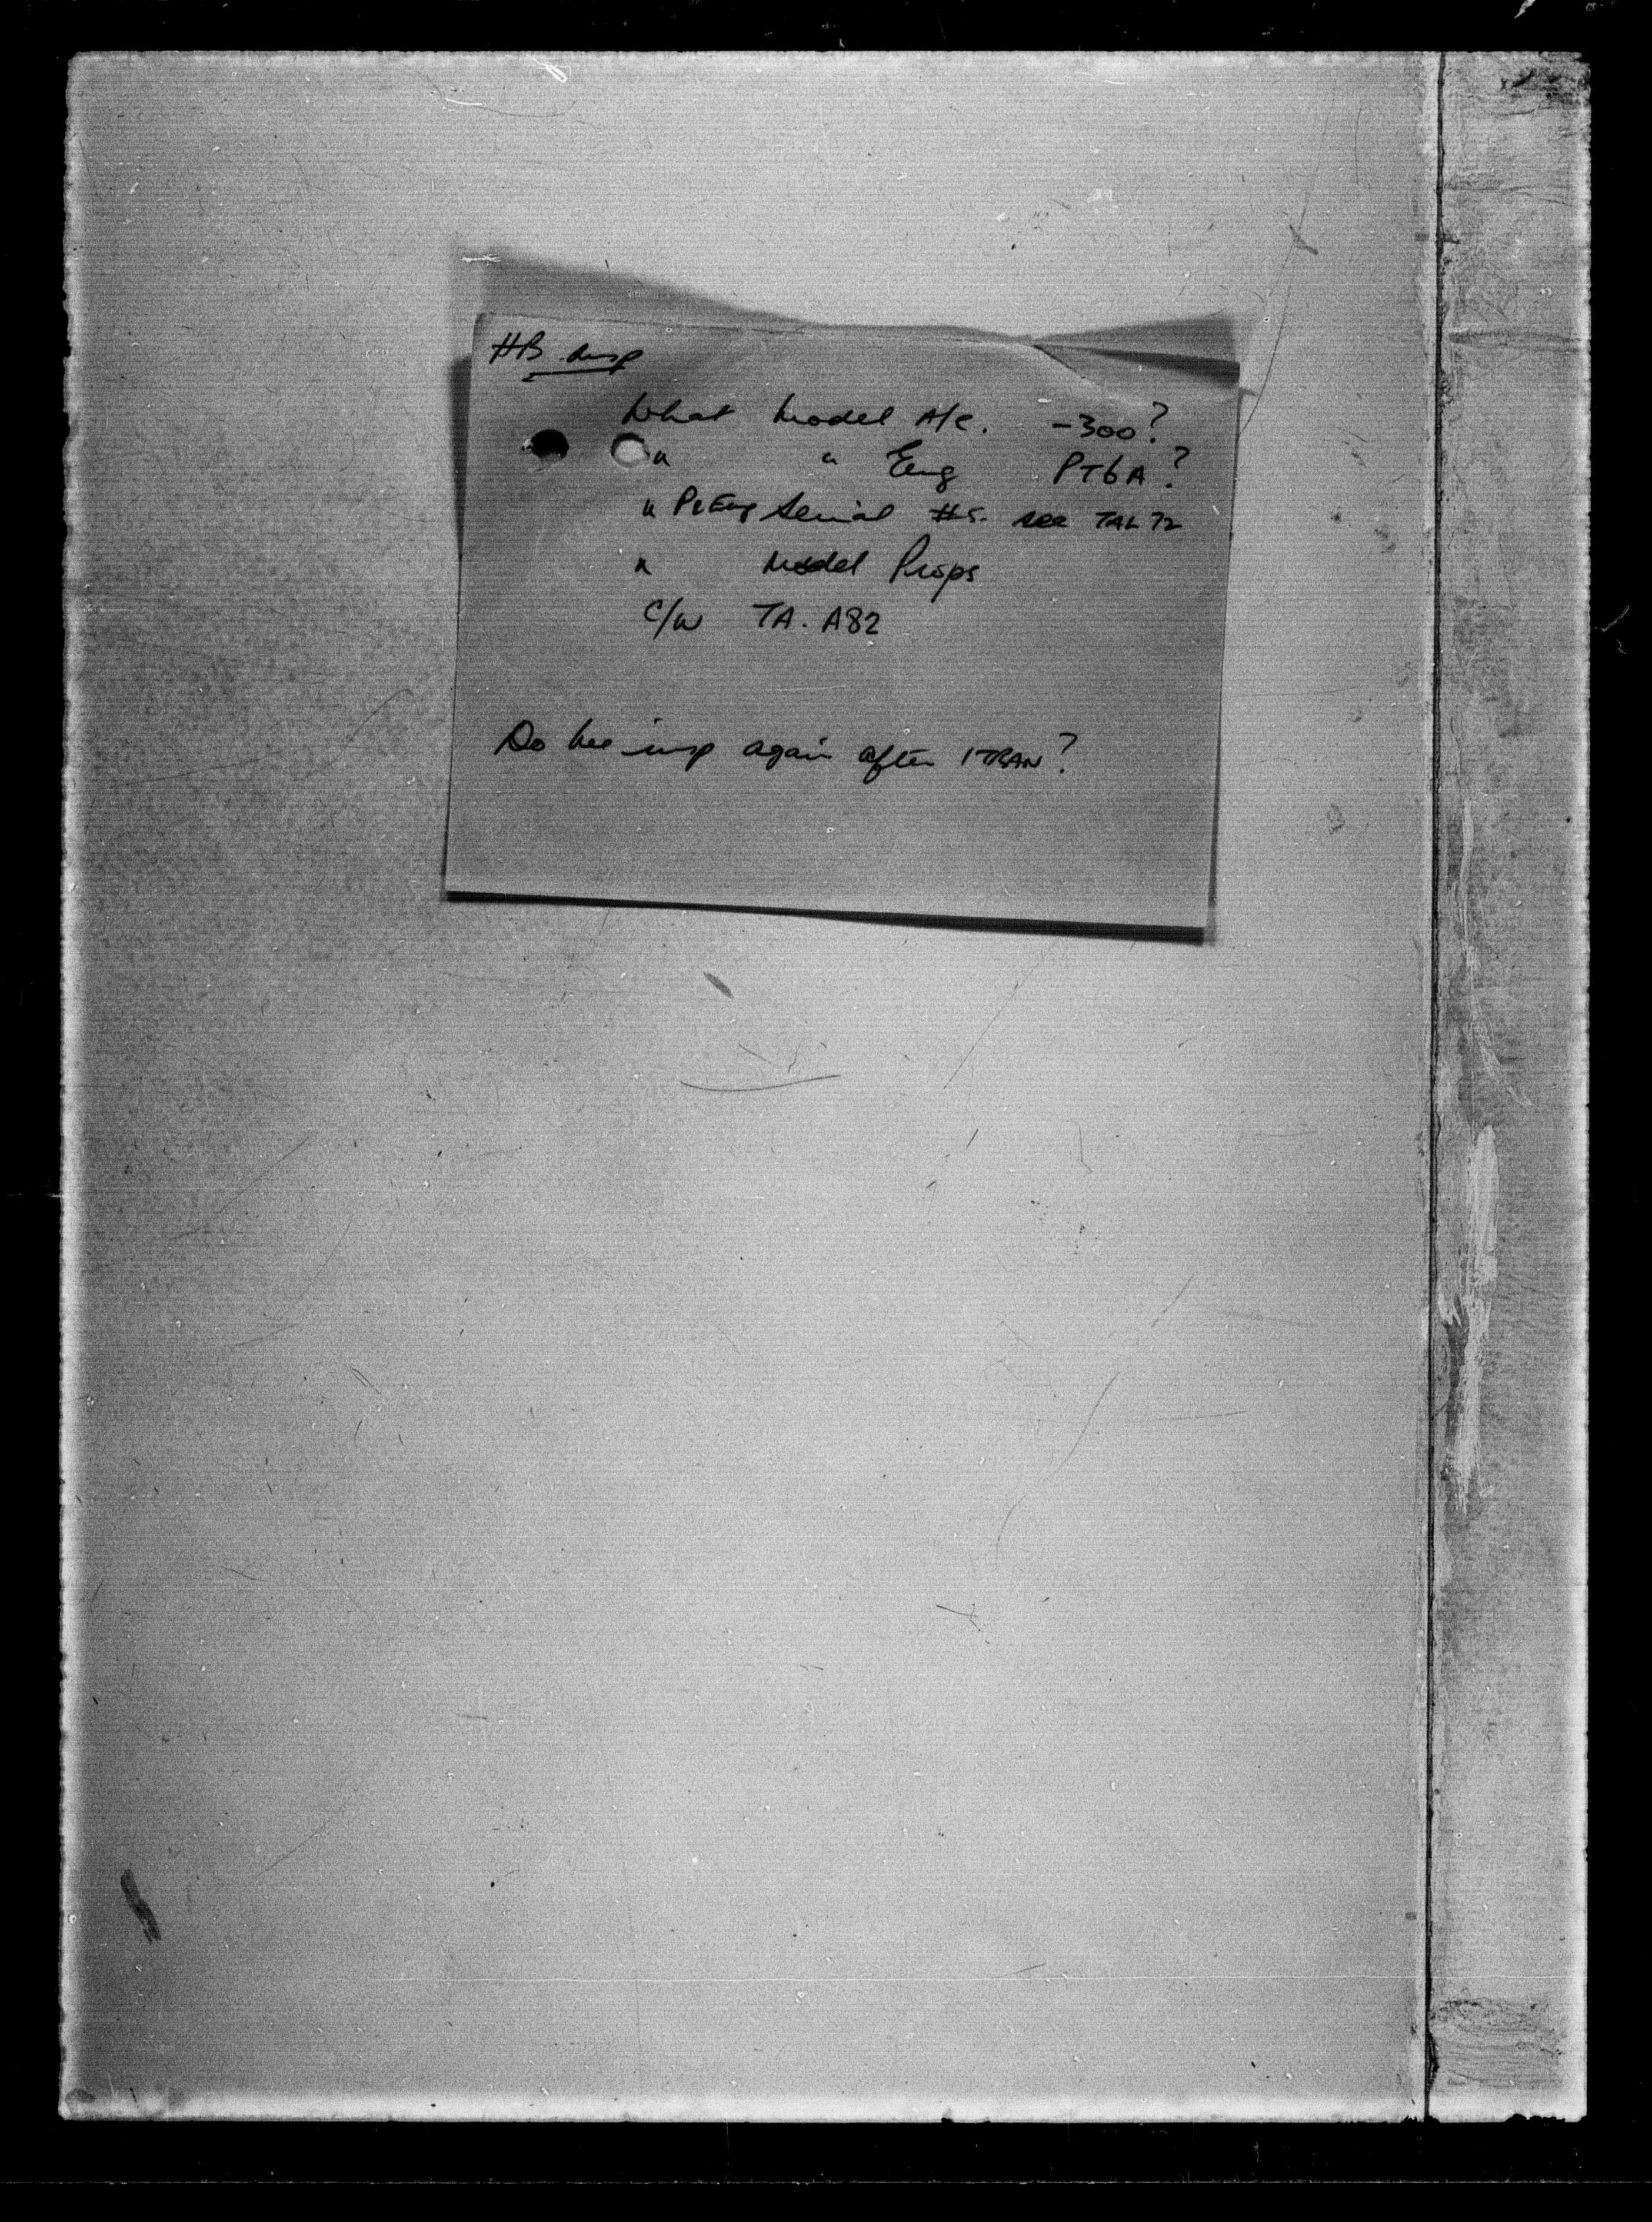 #B insp
What Model A/C. -300?
" " Eng PT6A?
" Serial #s. see TAL 72
" Model Props
C/W TA. A82
Do we insp again after ITRAN?